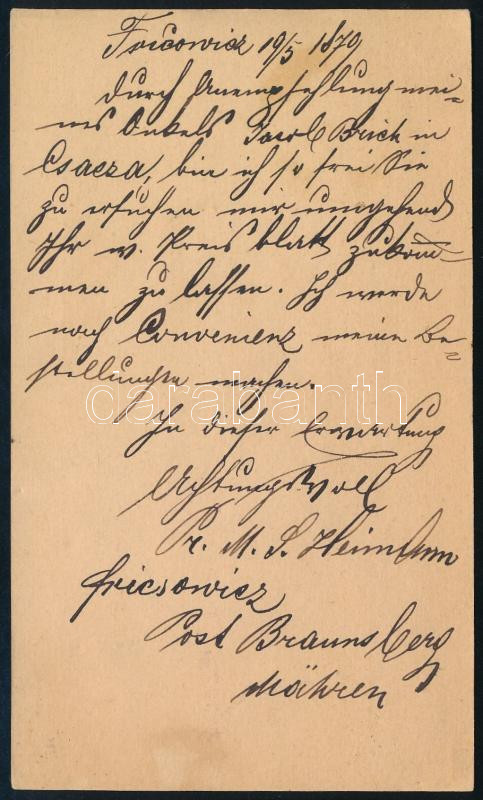 Fricowicz 19/5 1879
Durch Anempfehlung mei-
nes Onkels Jacob Brich in
Csacza, bin ich so frei Sie
zu ersuchen mir umgehend
Ihr w. Preisblatt zukom-
men zu lassen. Ich werde
nach Convenienz meine Be-
stellungen machen.
In dieser Erwartung
Achtungsvoll
Pr. M. S. Heimann
Fricsowicz
Post Braunsberg
Mähren
darabanth